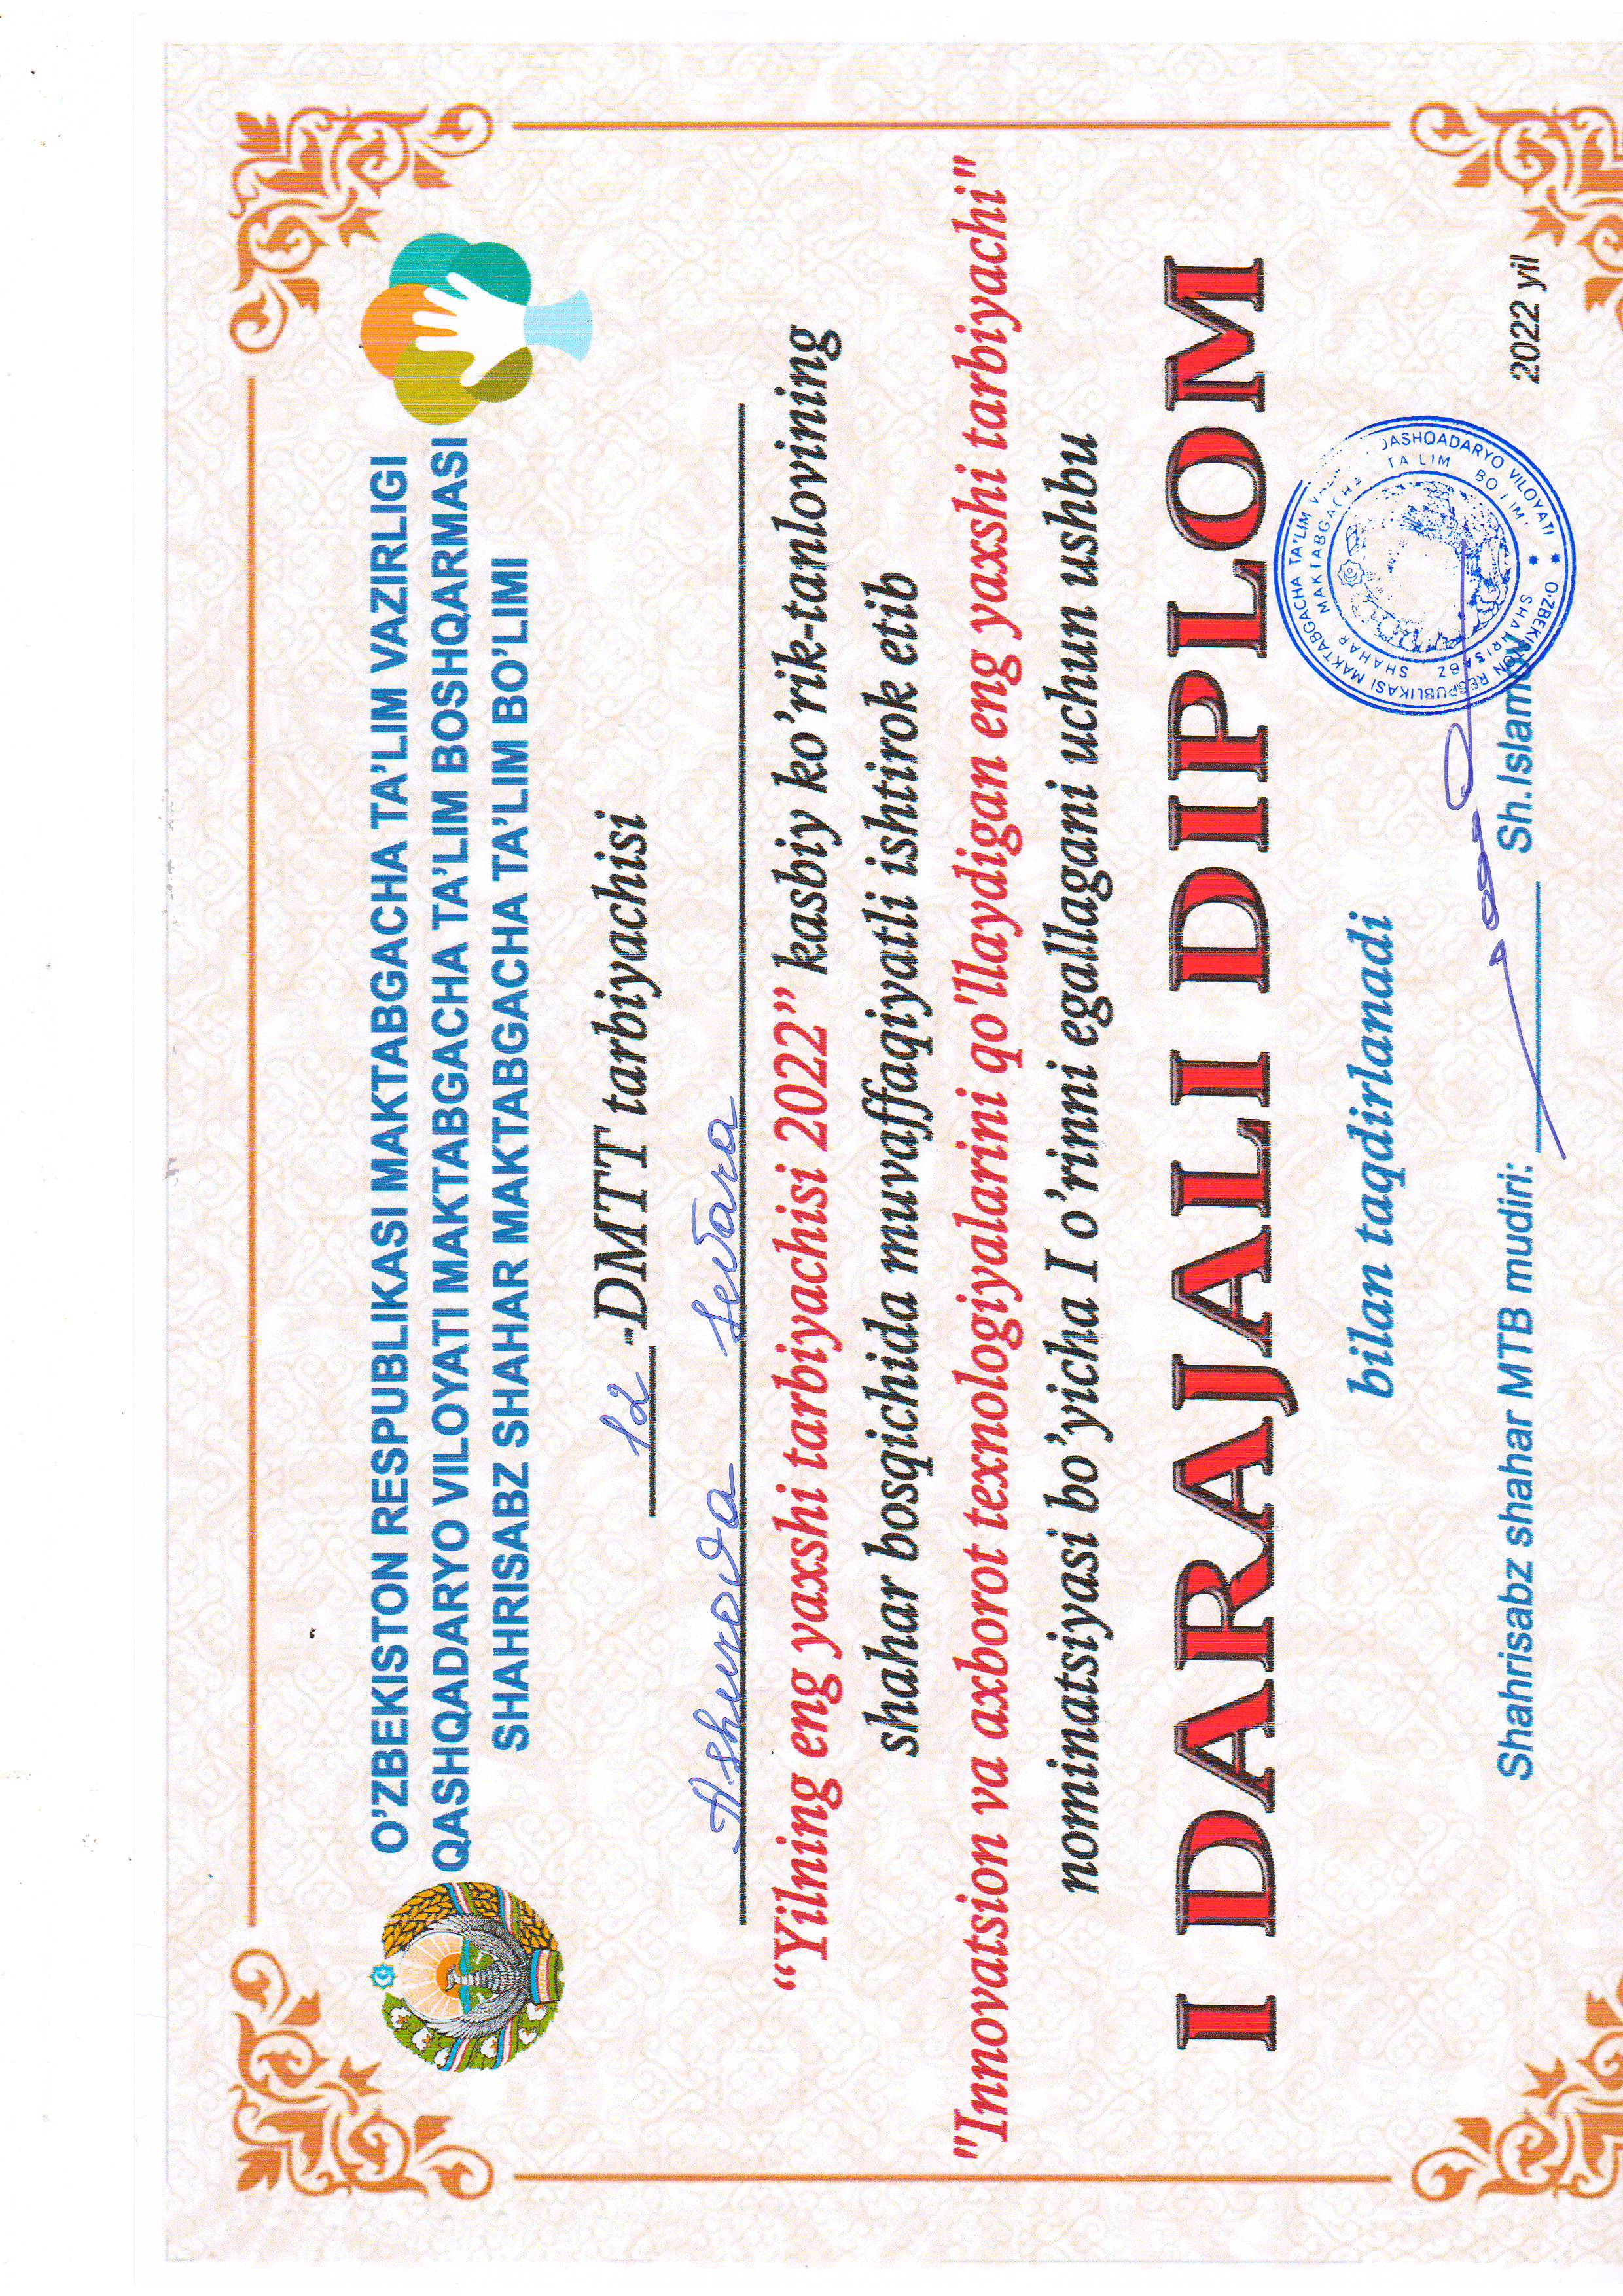 O’ZBEKISTON RESPUBLIKASI MAKTABGACHA TA’LIM VAZIRLIGI
QASHQADARYO VILOYATI MAKTABGACHA TA’LIM BOSHQARMASI
SHAHRISABZ SHAHAR MAKTABGACHA TA’LIM BO’LIMI
12 -DMTT tarbiyachisi
Ashurova Sevara
“Yilning eng yaxshi tarbiyachisi 2022” kasbiy ko’rik-tanlovining
shahar bosqichida muvaffaqiyatli ishtirok etib
"Innovatsion va axborot texnologiyalarini qo'llaydigan eng yaxshi tarbiyachi"
nominatsiyasi bo’yicha I o’rinni egallagani uchun ushbu
I DARAJALI DIPLOM
bilan taqdirlanadi
Shahrisabz shahar MTB mudiri: Sh.Islam
2022 yil
O‘ZBEKISTON RESPUBLIKASI MAKTABGACHA TA'LIM QASHQADARYO VILOYATI
SHAHRISABZ SHAHAR MAKTABGACHA TA LIM BO LIMI